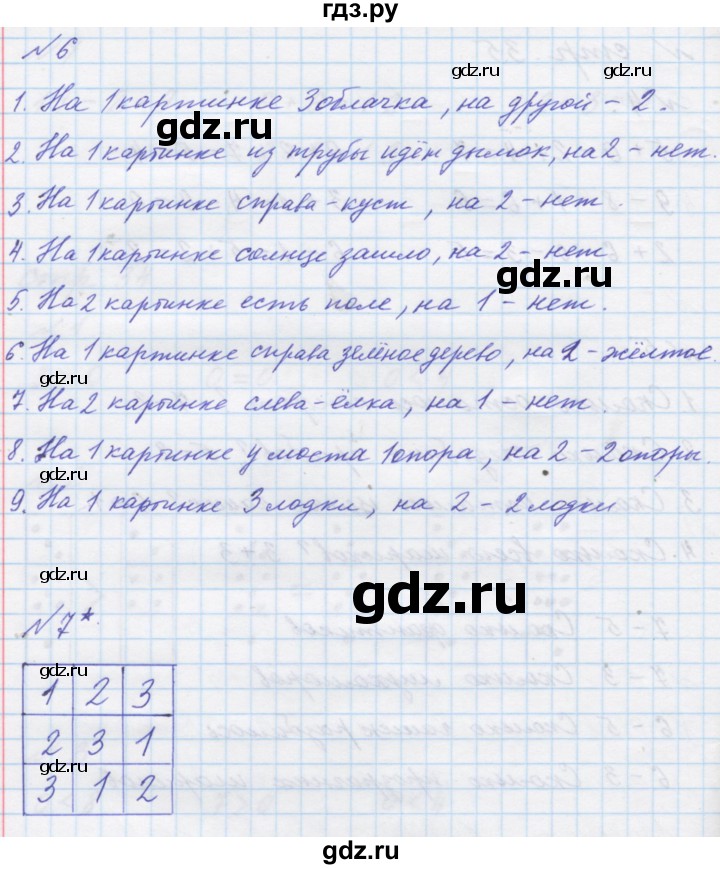 гдз.ру
№6
gdz.ru gdz.ru
1. На 1 картинке 3 облачка, на другой – 2.
gdz.ru
2. На 1 картинке из трубы идёт дымок, на 2 – нет.
3. На 1 картинке справа – куст, на 2 – нет.
4. На 1 картинке солнце зашло, на 2 – нет
gdz.ru
5. На 2 картинке есть поле, на 1 – нет.
6. На 1 картинке справа зелёное дерево, на 2 – жёлтое.
gdz.ru
7. На 2 картинке слева – ёлка, на 1 – нет
8. На 1 картинке у моста 1 опора, на 2 – 2 опоры.
gdz.ru
9. На 1 картинке 3 лодки, на 2 – 2 лодки
gdz.ru
gdz.ru
№7*
gdz.ru gdz.ru
1 2 3
2 3 1
gdz.ru gdz.ru
3 1 2
gdz.ru